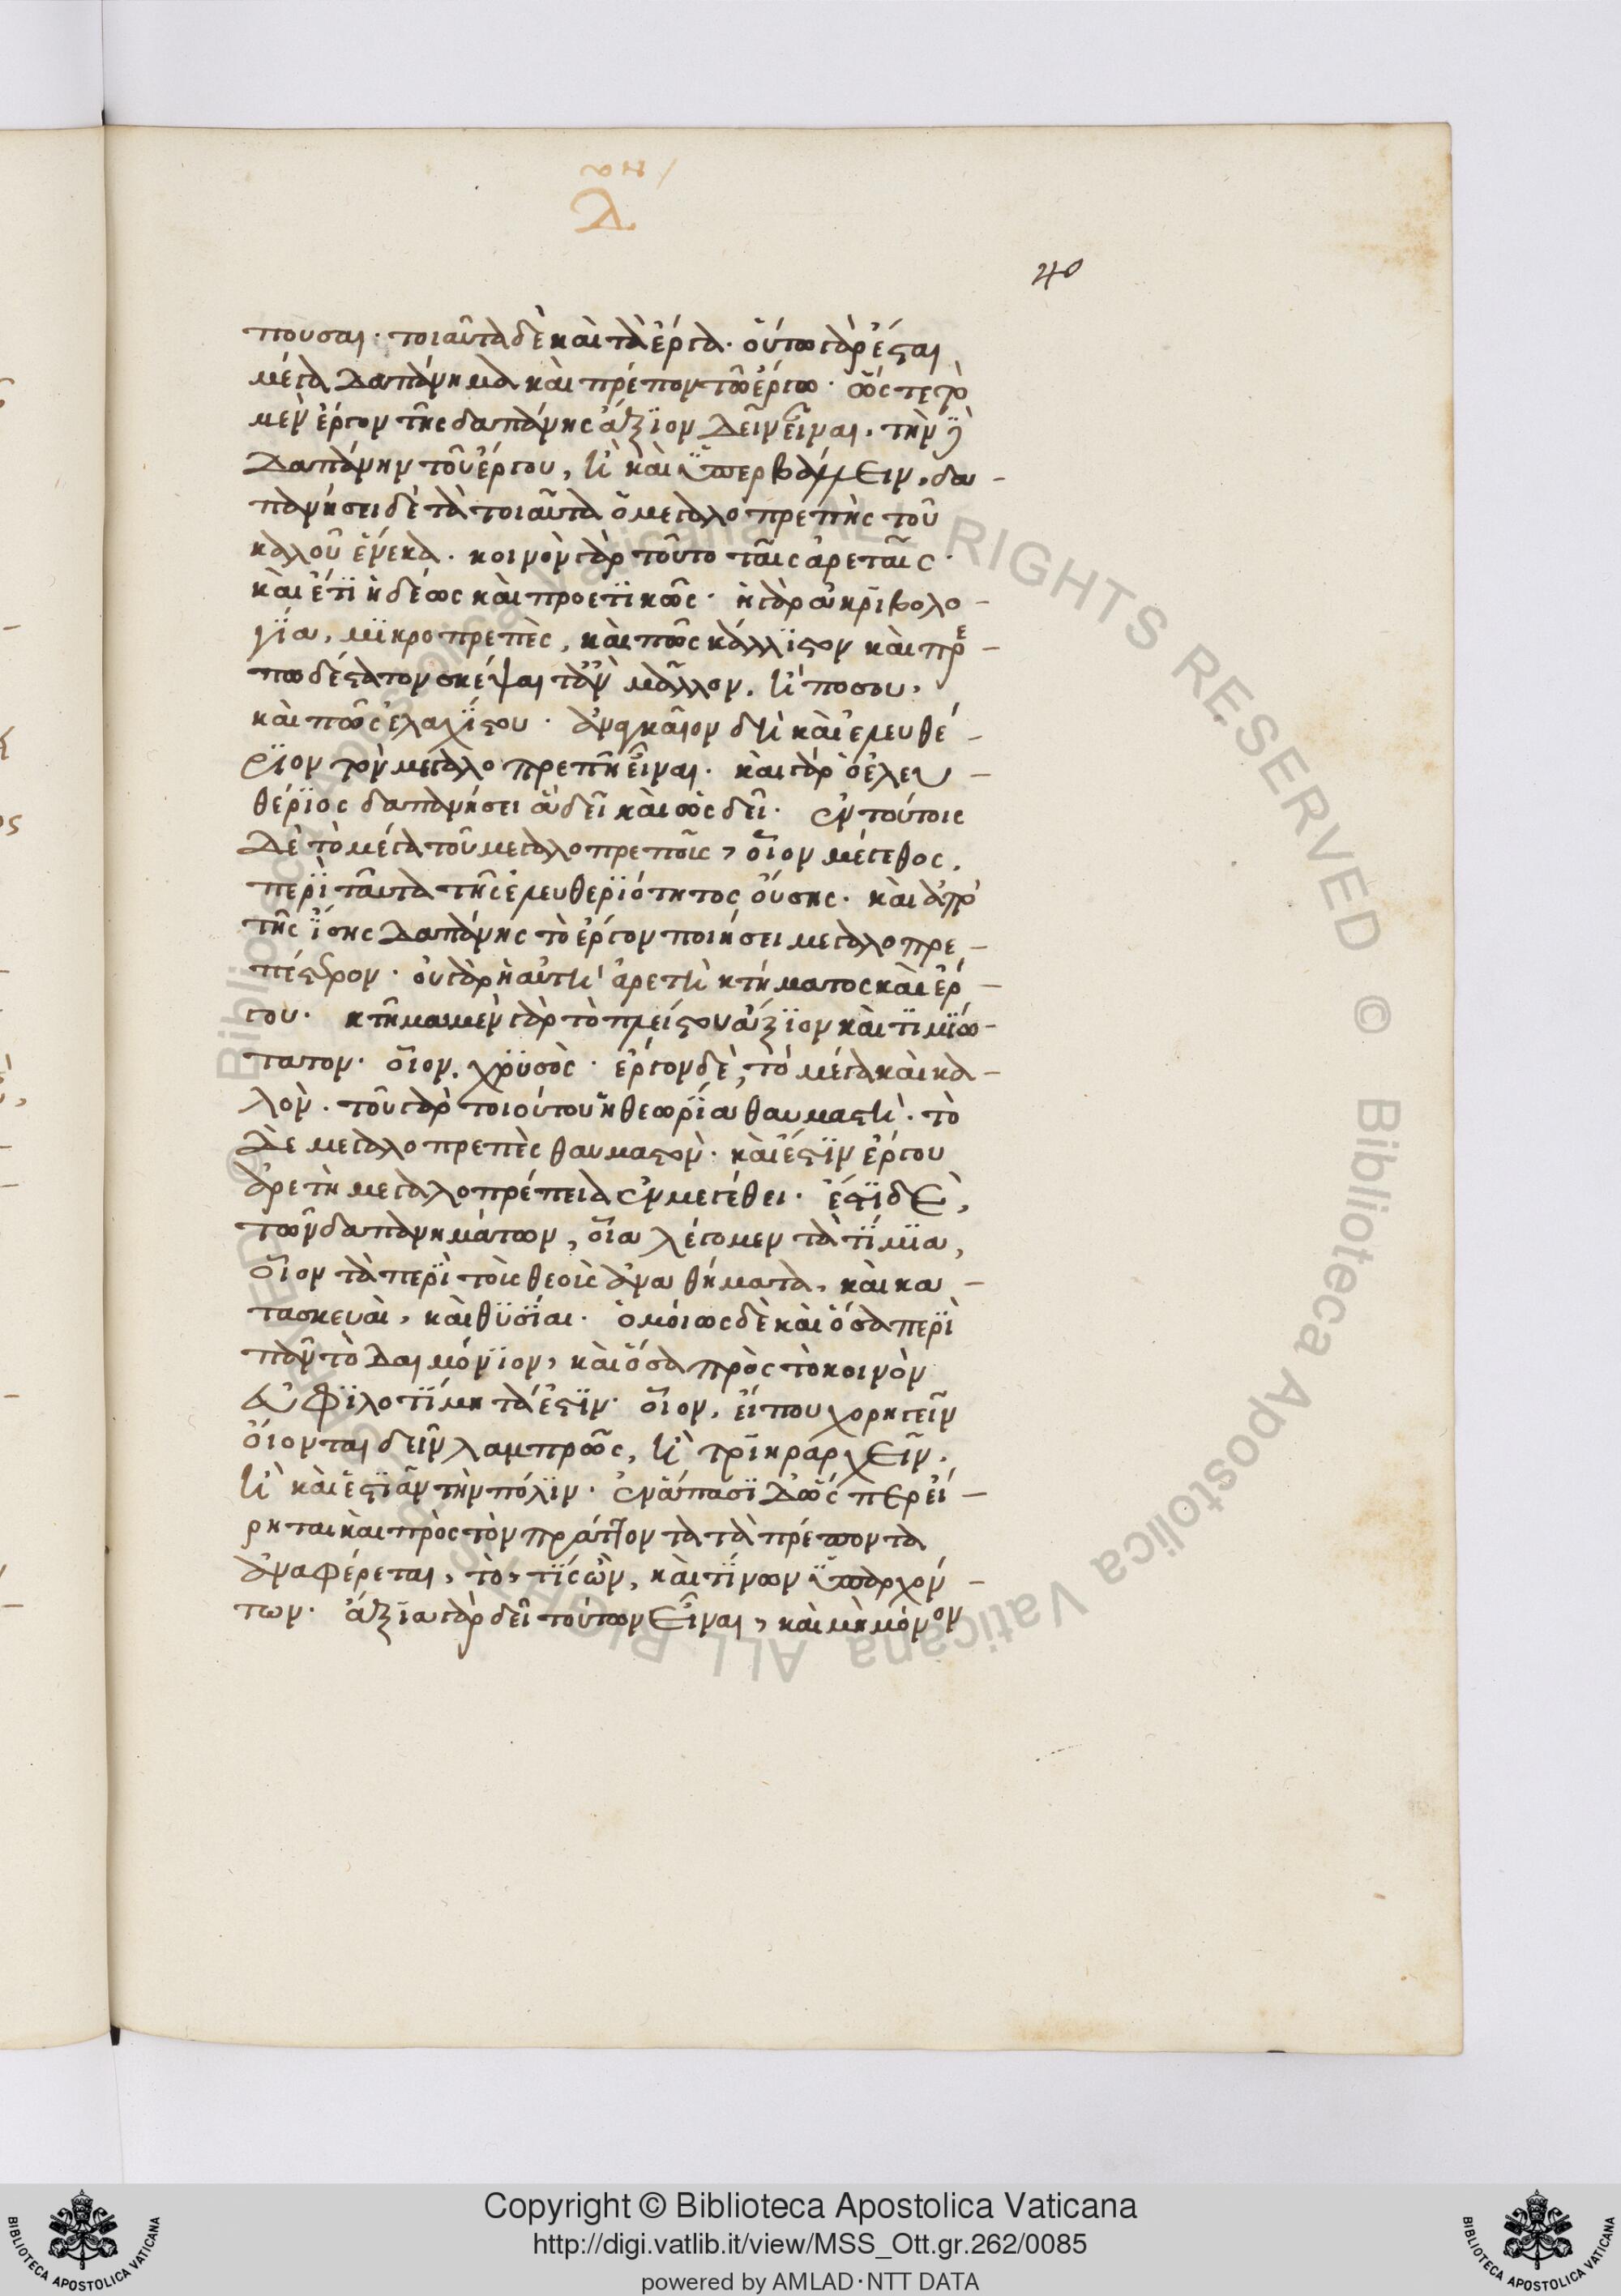 ηθ /
Δ
40
πουσαι· τοιαῦτα δὲ καὶ τὰ ἔργα· οὕτω γὰρ ἔσται
μέγα δαπάνημα καὶ πρέπον τῶ ἔργω· ὥστε τὸ
μὲν ἔργον τῆς δαπάνης ἄξϊον δεῖν εἶναι. τὴν δὲ
δαπάνην τοῦ ἔργου, ἢ καὶ ὑπερβάλλειν. δα-
πανήσει δὲ τὰ τοιαῦτα ὁ μεγαλοπρεπὴς τοῦ
καλοῦ ἕνεκα. κοινὸν γὰρ τοῦτο ταῖς ἀρεταῖς·
καὶ ἔτϊ ἡδέως καὶ προετϊκῶς· ἡ γὰρ ἀκρϊβολο-
γΐα, μϊκροπρεπὲς, καὶ πῶς κάλλϊστον καὶ πρε-
πωδέστατον σκέψαι τ' ἂν μᾶλλον. ἢ πόσου,
καὶ πῶς ἐλαχΐστου· ἀναγκαῖον δὴ καὶ ἐλευθέ-
ρϊον τὸν μεγαλοπρεπῆ εἶναι. καὶ γὰρ ὁ ἐλευ-
θέρϊος δαπανήσει ἃ δεῖ καὶ ὡς δεῖ· ἐν τούτοις
δὲ τὸ μέγα τοῦ μεγαλοπρεποῦς, οἷον μέγεθος.
περῒ ταῦτα τῆς ἐλευθερϊότητος οὔσης. καὶ ἀπὸ
τῆς ΐσης δαπάνης τὸ ἔργον ποιήσει μεγαλοπρε-
πέστερον· οὐ γὰρ ἡ αὐτὴ ἀρετὴ κτήματος καὶ ἔρ-
γου. κτῆμα μὲν γὰρ τὸ πλείστου ἄξϊον καὶ τϊμϊώ-
τατον. οἷον, χρϋσὸς· ἔργον δὲ, τὸ μέγα καὶ κα-
λὸν. τοῦ γὰρ τοιούτου ἡ θεωρΐα θαυμαστὴ. τὸ
δὲ μεγαλοπρεπὲς θαυμαστὸν· καὶ ἔστϊν ἔργου
ἀρετὴ μεγαλοπρέπεια ἐν μεγέθει· ἔστϊ δὲ,
τῶν δαπανημάτων, οἷα λέγομεν τὰ τΐμϊα,
οἷον τὰ περῒ τοὺς θεοὺς ἀναθήματα, καὶ κα-
τασκευαὶ, καὶ θϋσΐαι. ὁμοίως δὲ καὶ ὅσα περῒ
πᾶν τὸ δαιμόνϊον, καὶ ὅσα πρὸς τὸ κοινὸν
εὐφϊλοτΐμητά ἐστϊν· οἷον, εἴ που χορηγεῖν
οἴονται δεῖν λαμπρῶς, ἢ τρϊηραρχεῖν.
ἢ καὶ ἑστϊᾶν τὴν πόλϊν. ἐν ἅπασϊ δ' ὥσπερ εἴ-
ρηται καὶ πρὸς τὸν πράττοντα τὰ πρέποντα
ἀναφέρεται, τὸ, τΐς ὢν, καὶ τΐνων ὑπαρχόν-
των. ἄξϊα γὰρ δεῖ τούτων εἶναι, καὶ μὴ μόνον
© Biblioteca Apostolica Vaticana ALL RIGHTS RESERVED © Biblioteca Apostolica Vaticana ALL RIGHTS RESERVED
Copyright © Biblioteca Apostolica Vaticana
http://digi.vatlib.it/view/MSS_Ott.gr.262/0085
powered by AMLAD·NTT DATA
BIBLIOTECA APOSTOLICA VATICANA
BIBLIOTECA APOSTOLICA VATICANA